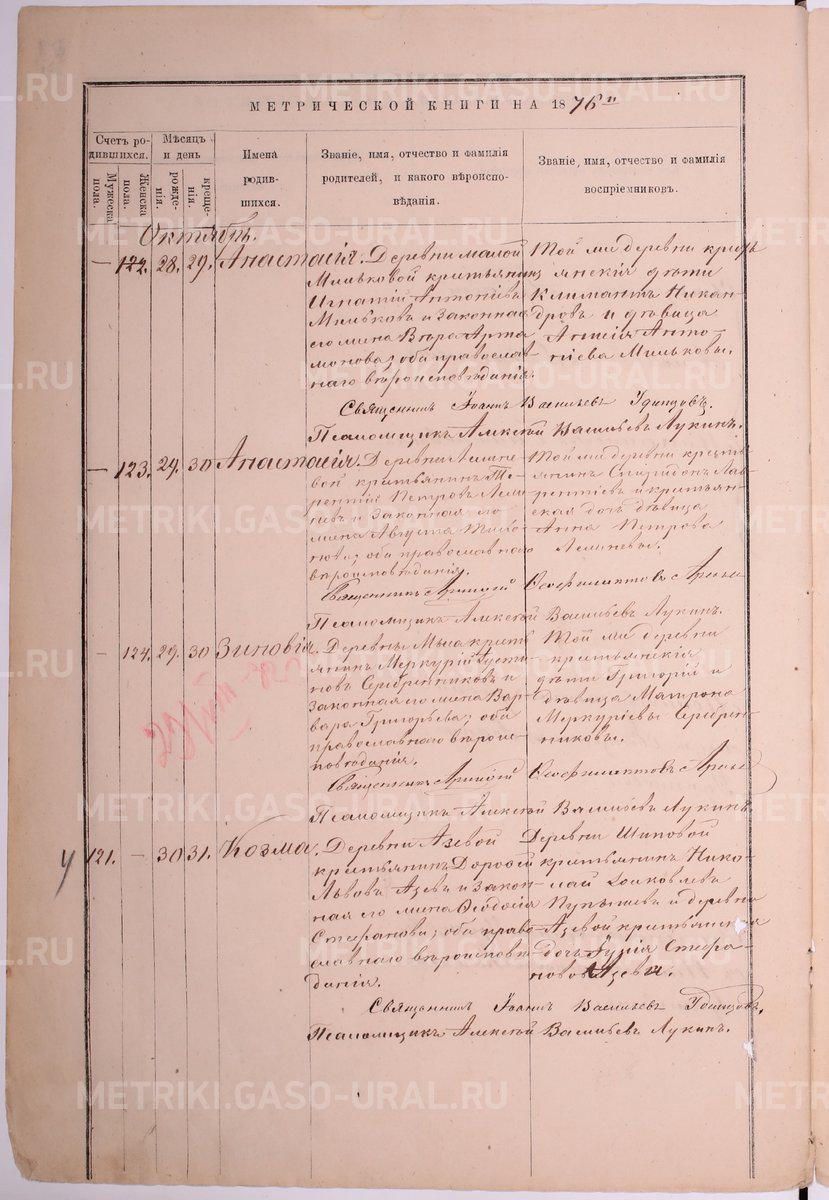 МЕТРИЧЕСКОЙ КНИГИ НА 1876й
Счетъ родившихся.
Мужеска пола.
Женска пола.
Мѣсяцъ и день
рожденія.
крещенія.
Имена родившихся.
Званіе, имя, отчество и фамилія родителей, и какого вѣроисповѣданія.
Званіе, имя, отчество и фамилія воспріемниковъ.
Октябрь.
— 122. 28. 29. Анастасія.
Деревни малой
Мильковой крестьянинъ
Игнатій Антоніевъ
Мильковъ и законная
его жена Вѣра Арта
монова; оба православ-
наго вѣроисповѣданія.
Той же деревни кресть
янскія дѣти
Климантъ Никан-
дровъ и дѣвица
Анто-
ніева Мильковы.
Священникъ Іоаннъ Васильевъ Удинцовъ.
Псаломщикъ Алексѣй Васильевъ Лукинъ.
— 123. 29. 30 Анастасія.
Деревни
вой крестьянинъ Те-
рентій Петровъ
и законная его
жена Августа Тихо-
нова; оба православнаго
вѣроисповѣданія.
Той же деревни кресть-
янинъ Спиридонъ Лав-
рентіевъ и крестьян-
ская дочь дѣвица
Анна Петрова
Священникъ Аркадій
Псаломщикъ Алексѣй Васильевъ Лукинъ.
— 124. 29. 30 Зиновія.
Деревни Мыса кресть
янинъ Меркурій Густи-
новъ Серебренниковъ и
законная его жена Вар-
вара Григорьева; оба
православнаго вѣроис-
повѣданія.
Той же деревни
крестьянскія
дѣти Григорій и
дѣвица Матрона
Меркуріевы Серебрен-
никовы.
Священникъ Аркадій
Псаломщикъ Алексѣй Васильевъ Лукинъ
121. — 30 31. Козма.
Деревни Азевой
крестьянинъ Дорофей
Львовъ Азевъ и закон-
ная его жена Ѳеодосія
Стефанова; оба право-
славнаго вѣроисповѣ
данія.
Деревни Шиповой
крестьянинъ Нико-
лай Іаковлевъ
Пупышевъ и деревни
Азевой крестьянская
дочь Стефа-
нова Азева.
Священникъ Іоаннъ Васильевъ Удинцовъ.
Псаломщикъ Алексѣй Васильевъ Лукинъ.
METRIKI.GASO-URAL.RU